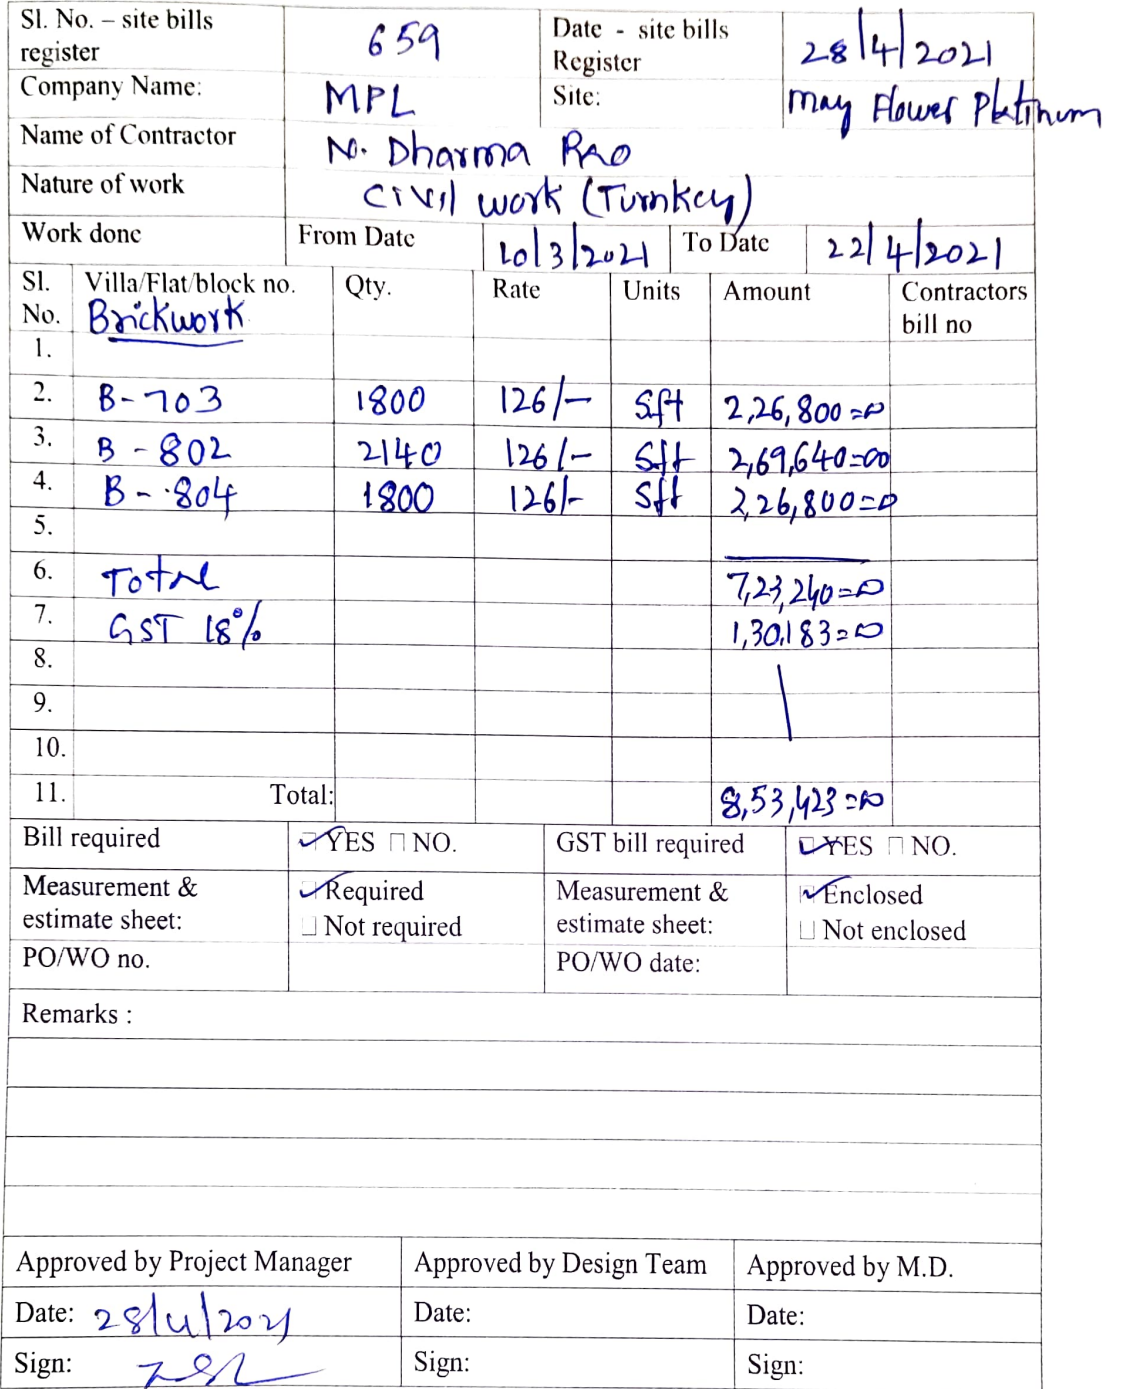 Sl. No. – site bills register 659 Date - site bills Register 28/4/2021
Company Name: MPL Site: May Flower Platinum
Name of Contractor N. Dharma Rao
Nature of work Civil work (Turnkey)
Work done From Date 10/3/2021 To Date 22/4/2021
Sl. No. Villa/Flat/block no. Qty. Rate Units Amount Contractors bill no
Brickwork
1.
2. B-703 1800 126/- Sft 2,26,800=00
3. B-802 2140 126/- Sft 2,69,640=00
4. B-804 1800 126/- Sft 2,26,800=00
5.
6. Total 7,23,240=00
7. GST 18% 1,30,183=00
8.
9.
10.
11. Total: 8,53,423=00
Bill required YES NO. GST bill required YES NO.
Measurement & estimate sheet: Required Not required Measurement & estimate sheet: Enclosed Not enclosed
PO/WO no. PO/WO date:
Remarks :
Approved by Project Manager Approved by Design Team Approved by M.D.
Date: 28/4/2021 Date: Date:
Sign: Sign: Sign: